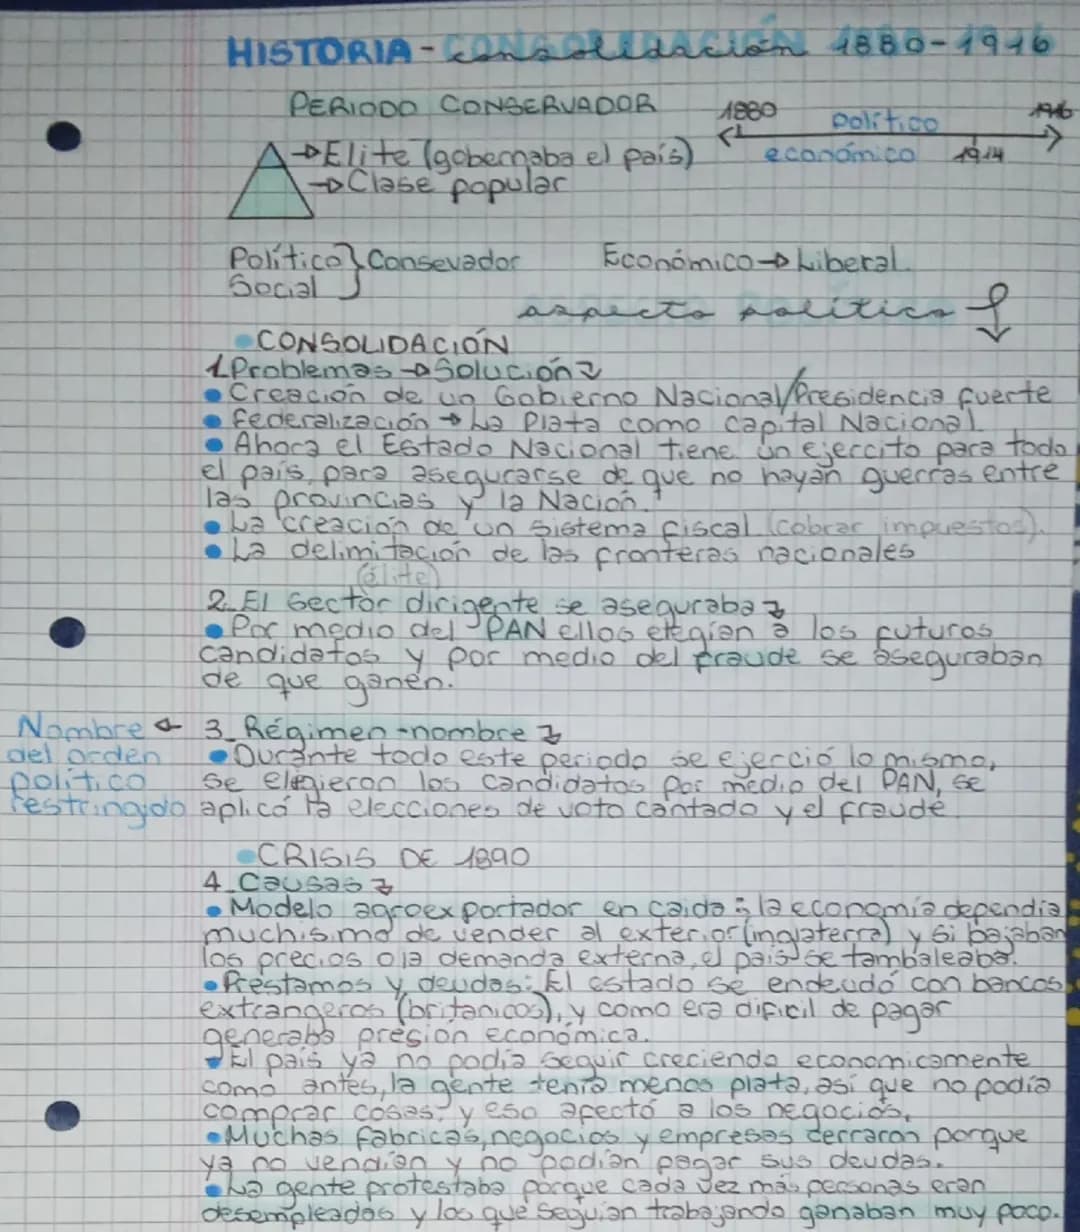 HISTORIA - consolidación 1880-1916
PERIODO CONSERVADOR
1880 político 1916
económico 1914
→Elite (gobernaba el país)
→Clase popular
Político } Consevador Económico → Liberal.
Social
aspecto político
• CONSOLIDACIÓN
1. Problemas → Solución
• Creación de un Gobierno Nacional/Presidencia fuerte
• Federalización → La Plata como capital Nacional.
• Ahora el Estado Nacional tiene un ejercito para todo
el país, para asegurarse de que no hayan guerras entre
las provincias y la Nación.
• La creación de un sistema fiscal (cobrar impuestos).
• La delimitación de las fronteras nacionales
(élite)
2. El sector dirigente se aseguraba
• Por medio del PAN ellos elegian a los futuros
candidatos y por medio del fraude se aseguraban
de que ganen.
3. Régimen - nombre
Nombre ←
del orden
político
restringido
• Durante todo este periodo se ejerció lo mismo,
se eligieron los candidatos por medio del PAN, se
aplicó la elecciones de voto cantado y el fraude.
• CRISIS DE 1890
4. Causas
• Modelo agroexportador en caida: la economía dependía
muchisimo de vender al exterior (inglaterra) y si bajaban
los precios o la demanda externa, el país se tambaleaba.
• Préstamos y deudas: El estado se endeudó con bancos
extrangeros (britanicos), y como era dificil de pagar
generaba presión económica.
• El país ya no podía seguir creciendo economicamente
como antes, la gente tenía menos plata, así que no podía
comprar cosas y eso afectó a los negocios.
• Muchas fabricas, negocios y empresas cerraron porque
ya no vendían y no podían pagar sus deudas.
• La gente protestaba porque cada vez más personas eran
desempleados y los que seguian trabajando ganaban muy poco.